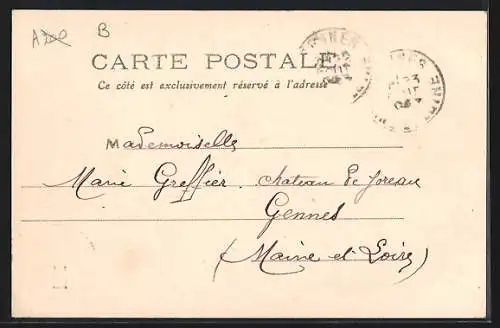 A200 B
CARTE POSTALE
Ce côté est exclusivement réservé à l'adresse
Mademoiselle
Marie Greffier. chateau de Joreau
Gennes
(Maine et Loire)